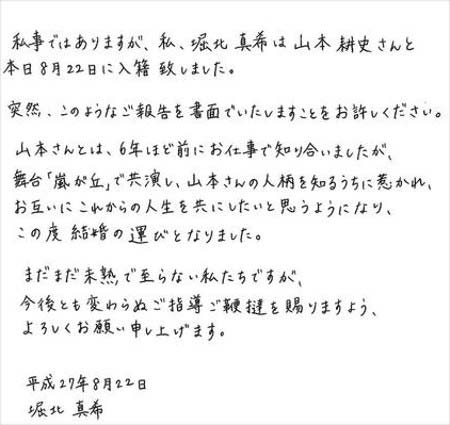 私事ではありますが、私、堀北 真希は 山本 耕史さんと
本日8月22日に入籍 致しました。
突然、このようなご報告を書面でいたしますことをお許しください。
山本さんとは、6年ほど前にお仕事で知り合いましたが、
舞台「嵐が丘」で共演し、山本さんの人柄を知るうちに惹かれ、
お互いに これからの人生を共にしたいと思うようになり、
この度 結婚の運びとなりました。
まだまだ未熟で至らない私たちですが、
今後とも変わらぬご指導ご鞭撻を賜りますよう、
よろしくお願い申し上げます。
平成27年8月22日
堀北 真希